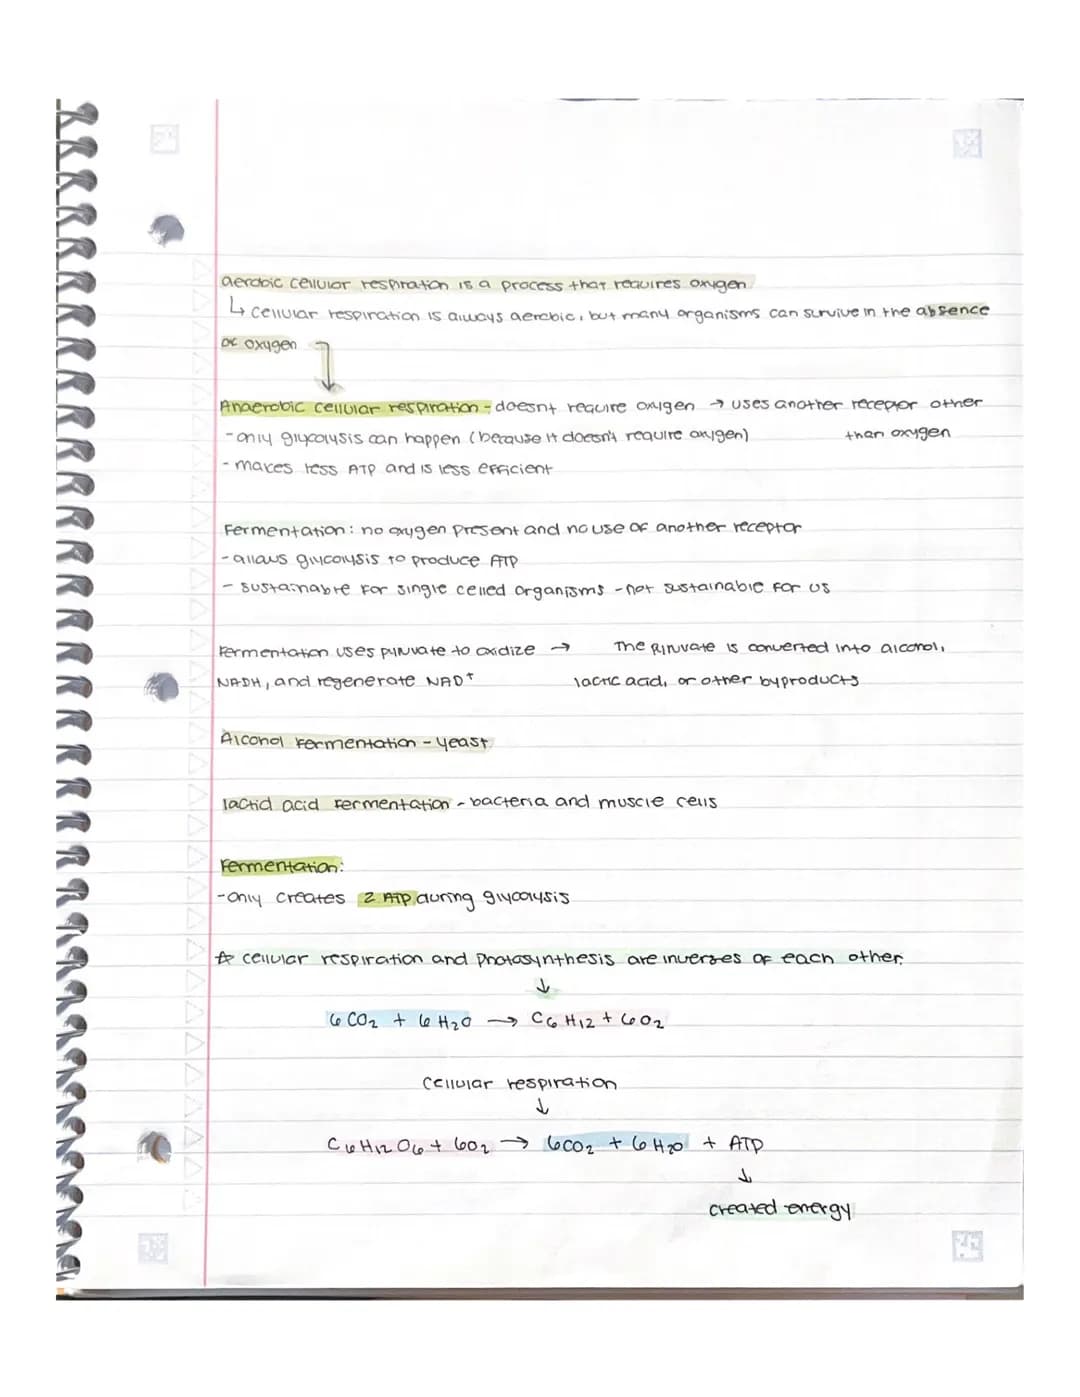 aerobic cellular respiration is a process that requires oxygen.
↳ cellular respiration is always aerobic, but many organisms can survive in the absence
of oxygen
Anaerobic cellular respiration - doesnt require oxygen → uses another receptor other
than oxygen
- only glycolysis can happen (because it doesn't require oxygen)
- makes less ATP and is less efficient
Fermentation: no oxygen present and no use of another receptor
- allows glycolysis to produce ATP
- sustainable for single celled organisms - not sustainable for us
Fermentation uses pyruvate to oxidize →
NADH, and regenerate NAD⁺
The pyruvate is converted into alcohol,
lactic acid, or other byproducts
Alcohol fermentation - yeast
lactid acid fermentation - bacteria and muscle cells
Fermentation:
- only creates 2 ATP during glycolysis
☆ cellular respiration and photosynthesis are inverses of each other.
↓
6 CO₂ + 6 H₂O → C₆H₁₂ + 6O₂
cellular respiration
↓
C₆H₁₂O₆ + 6O₂ → 6CO₂ + 6H₂O + ATP
↓
created energy